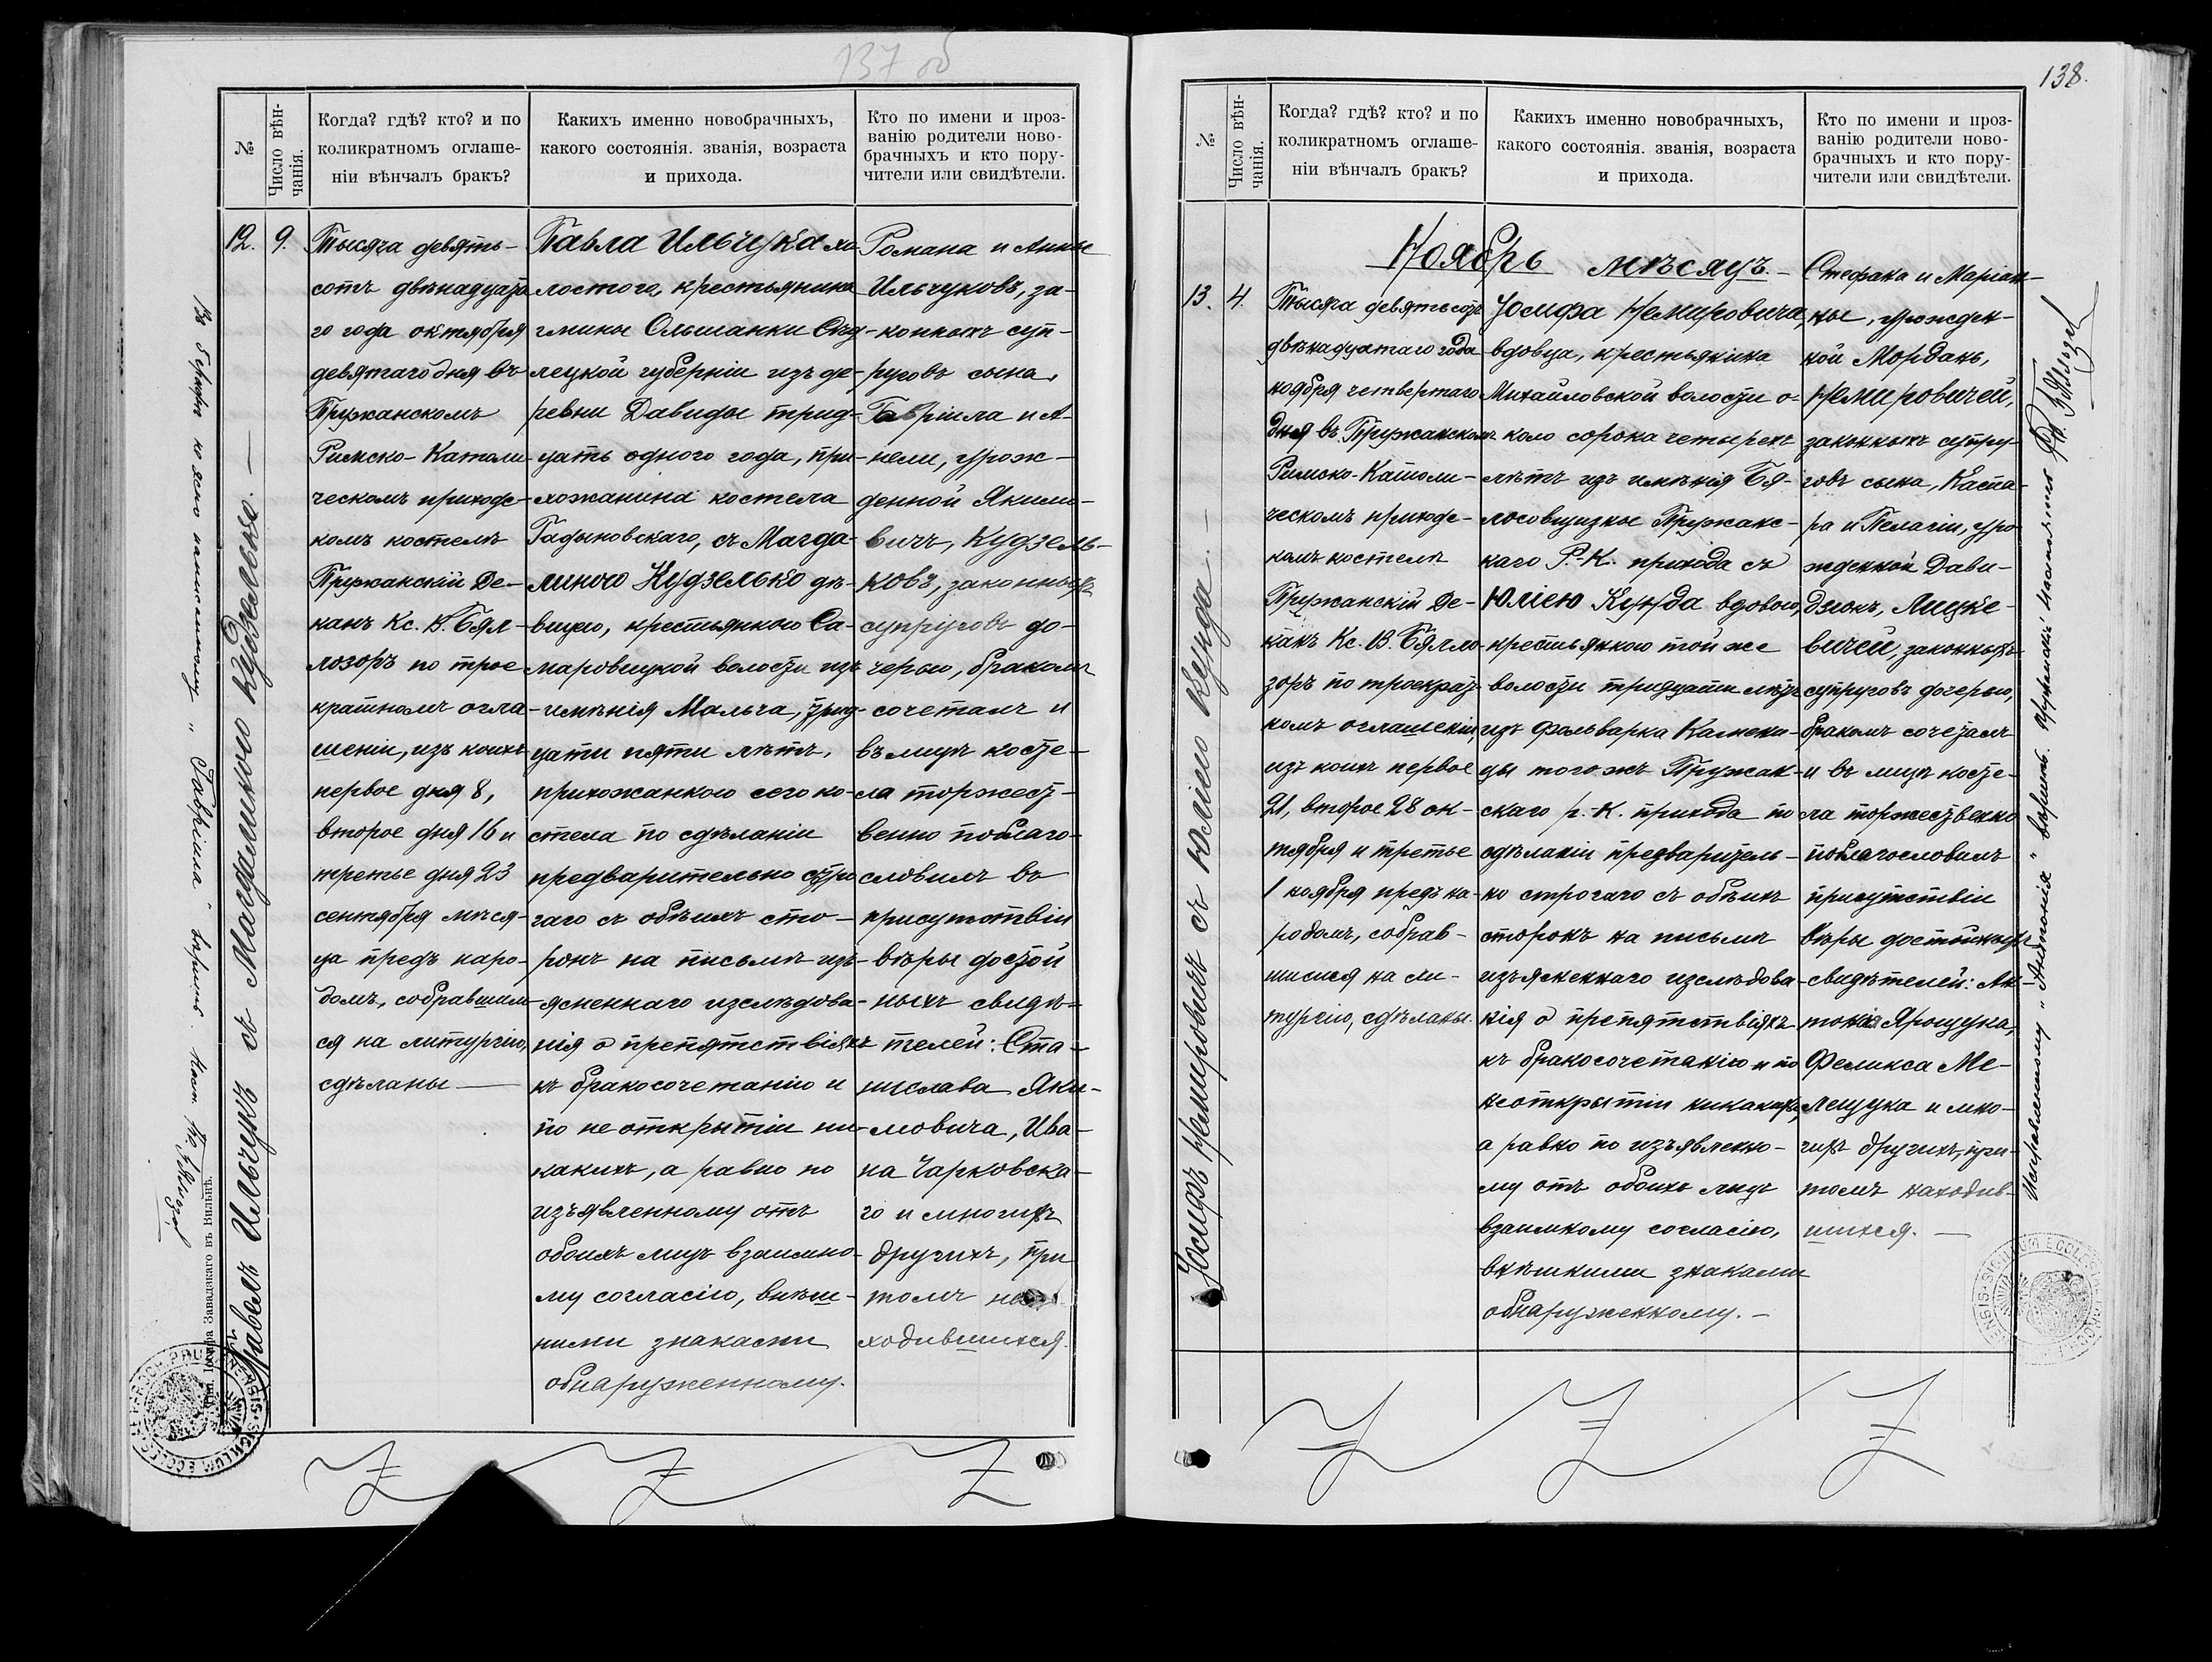 137 об
№
Число вѣн-
чанія.
Когда? гдѣ? кто? и по
коликратномъ оглаше-
ніи вѣнчалъ бракъ?
Какихъ именно новобрачныхъ,
какого состоянія. званія, возраста
и прихода.
Кто по имени и проз-
ванію родители ново-
брачныхъ и кто пору-
чители или свидѣтели.
12.
9.
Павелъ Ильчукъ съ Магдалиною Кудзелько. —
Тысяча девять-
сотъ двѣнадцата
го года октября
девятаго дня въ
Пружанскомъ
Римско-Католи-
ческомъ приходс-
комъ костелѣ
Пружанскій Де-
канъ Кс. В. Бял-
лозоръ по трое
кратномъ огла-
шеніи, изъ коихъ
первое дня 8,
второе дня 16 и
третье дня 23
сентября мѣся-
ца предъ наро-
домъ, собравшим
ся на литургію,
сдѣланы —
Павла Ильчука хо-
лостого, крестьянина
гмины Ольшанки Сѣд-
лецкой губерніи изъ де-
ревни Давиды трид-
цать одного года, при-
хожанина костела
Гадыновскаго, съ Магда-
линою Кудзелько дѣ-
вицею, крестьянкою Са-
маровицкой волости изъ
имѣнія Мальча, трид-
цати пяти лѣтъ,
прихожанкою сего ко-
стела по сдѣланіи
предварительно стро
гаго съ обѣихъ сто-
ронъ на письмѣ изъ-
ясненнаго изслѣдова-
нія о препятствіяхъ
къ бракосочетанію и
по не открытіи ни-
какихъ, а равно по
изъявленному отъ
обоихъ лицъ взаимно-
му согласію, внѣш-
ними знаками
обнаруженному.
Романа и Анны
Ильчуковъ, за-
конныхъ суп-
руговъ сына,
Гавріила и А-
нели, урож-
денной Якимо-
вичъ, Кудзель-
ковъ, законныхъ
супруговъ до-
черью, бракомъ
сочеталъ и
въ лицѣ косте-
ла торжест-
венно поблаго-
словилъ въ
присутствіи
вѣры достой
ныхъ свидѣ-
телей: Ста-
нислава Яки-
мовича, Ива-
на Чарковска-
го и многихъ
другихъ, при
томъ на
ходившихся.
138.
№
Число вѣн-
чанія.
Когда? гдѣ? кто? и по
коликратномъ оглаше-
ніи вѣнчалъ бракъ?
Какихъ именно новобрачныхъ,
какого состоянія. званія, возраста
и прихода.
Кто по имени и проз-
ванію родители ново-
брачныхъ и кто пору-
чители или свидѣтели.
Ноябрь мѣсяцъ. —
13.
4.
Іосифъ Немировичъ съ Юліею Кунда —
Тысяча девятьсотъ
двѣнадцатаго года
ноября четвертаго
дня въ Пружанскомъ
Римско-Католи-
ческомъ приходс-
комъ костелѣ
Пружанскій Де-
канъ Кс. В. Бялло-
зоръ по троекрат-
номъ оглашеніи,
изъ коихъ первое
21, второе 28 ок-
тября и третье
1 ноября предъ на-
родомъ, собрав-
шимся на ли-
тургію, сдѣланы.
Іосифа Немировича,
вдовца, крестьянина
Михайловской волости о-
коло сорока четырехъ
лѣтъ изъ имѣнія Бя-
лосовщизны Пружанс-
каго Р.-К. прихода съ
Юліею Кунда вдовою,
крестьянкою той же
волости тридцати лѣтъ
изъ фольварка Каменн-
цы того жъ Пружан-
скаго р.-К. прихода по
сдѣланіи предваритель-
но строгаго съ обѣихъ
сторонъ на письмѣ
изъясненнаго изслѣдова-
нія о препятствіяхъ
къ бракосочетанію и по
неоткрытіи никакихъ,
а равно по изъявленно-
му отъ обоихъ лицъ
взаимному согласію,
внѣшними знаками
обнаруженному. —
Стефана и Маріан-
ны, урожден-
ной Мордань,
Немировичей,
законныхъ супру-
говъ сына, Каспа-
ра и Пелагіи, уро
жденной Дави-
дзюкъ, Лицке-
вичей, законныхъ
супруговъ дочерью,
бракомъ сочеталъ
и въ лицѣ косте-
ла торжественно
поблагословилъ
присутствіи
вѣры достойныхъ
свидѣтелей: Ан-
тонія Ярощука,
Феликса Ме-
лещука и мно-
гихъ другихъ, при
томъ находив-
шихся. —
Исправленному "Антонія" вѣрить.